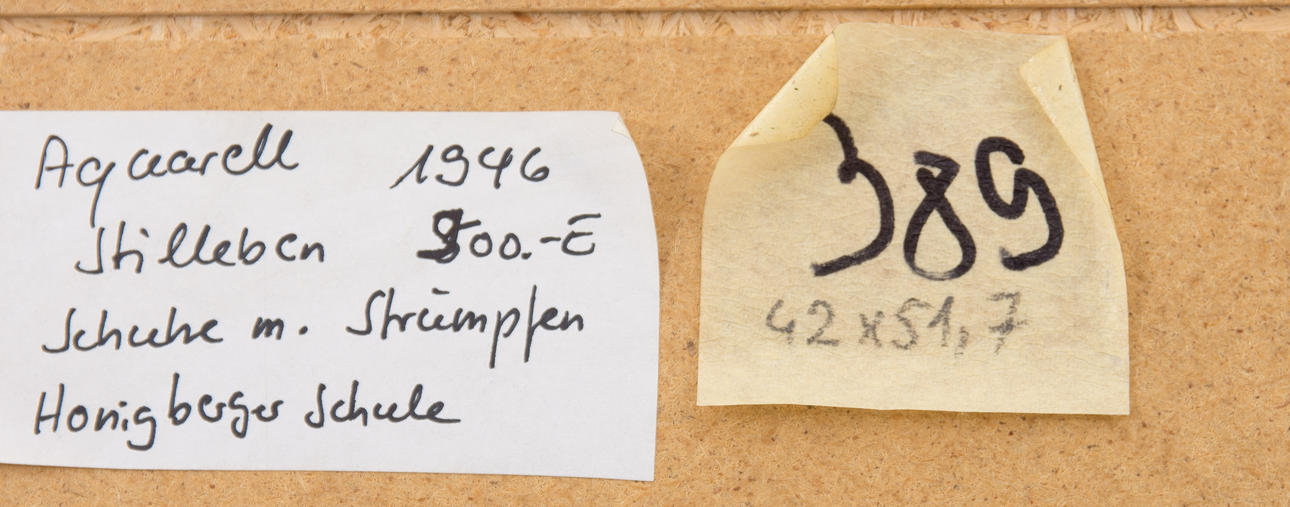 Aquarell 1946
Stilleben 00.-E
Schuhe m. Strümpfen
Honigberger Schule
389
42x51,7